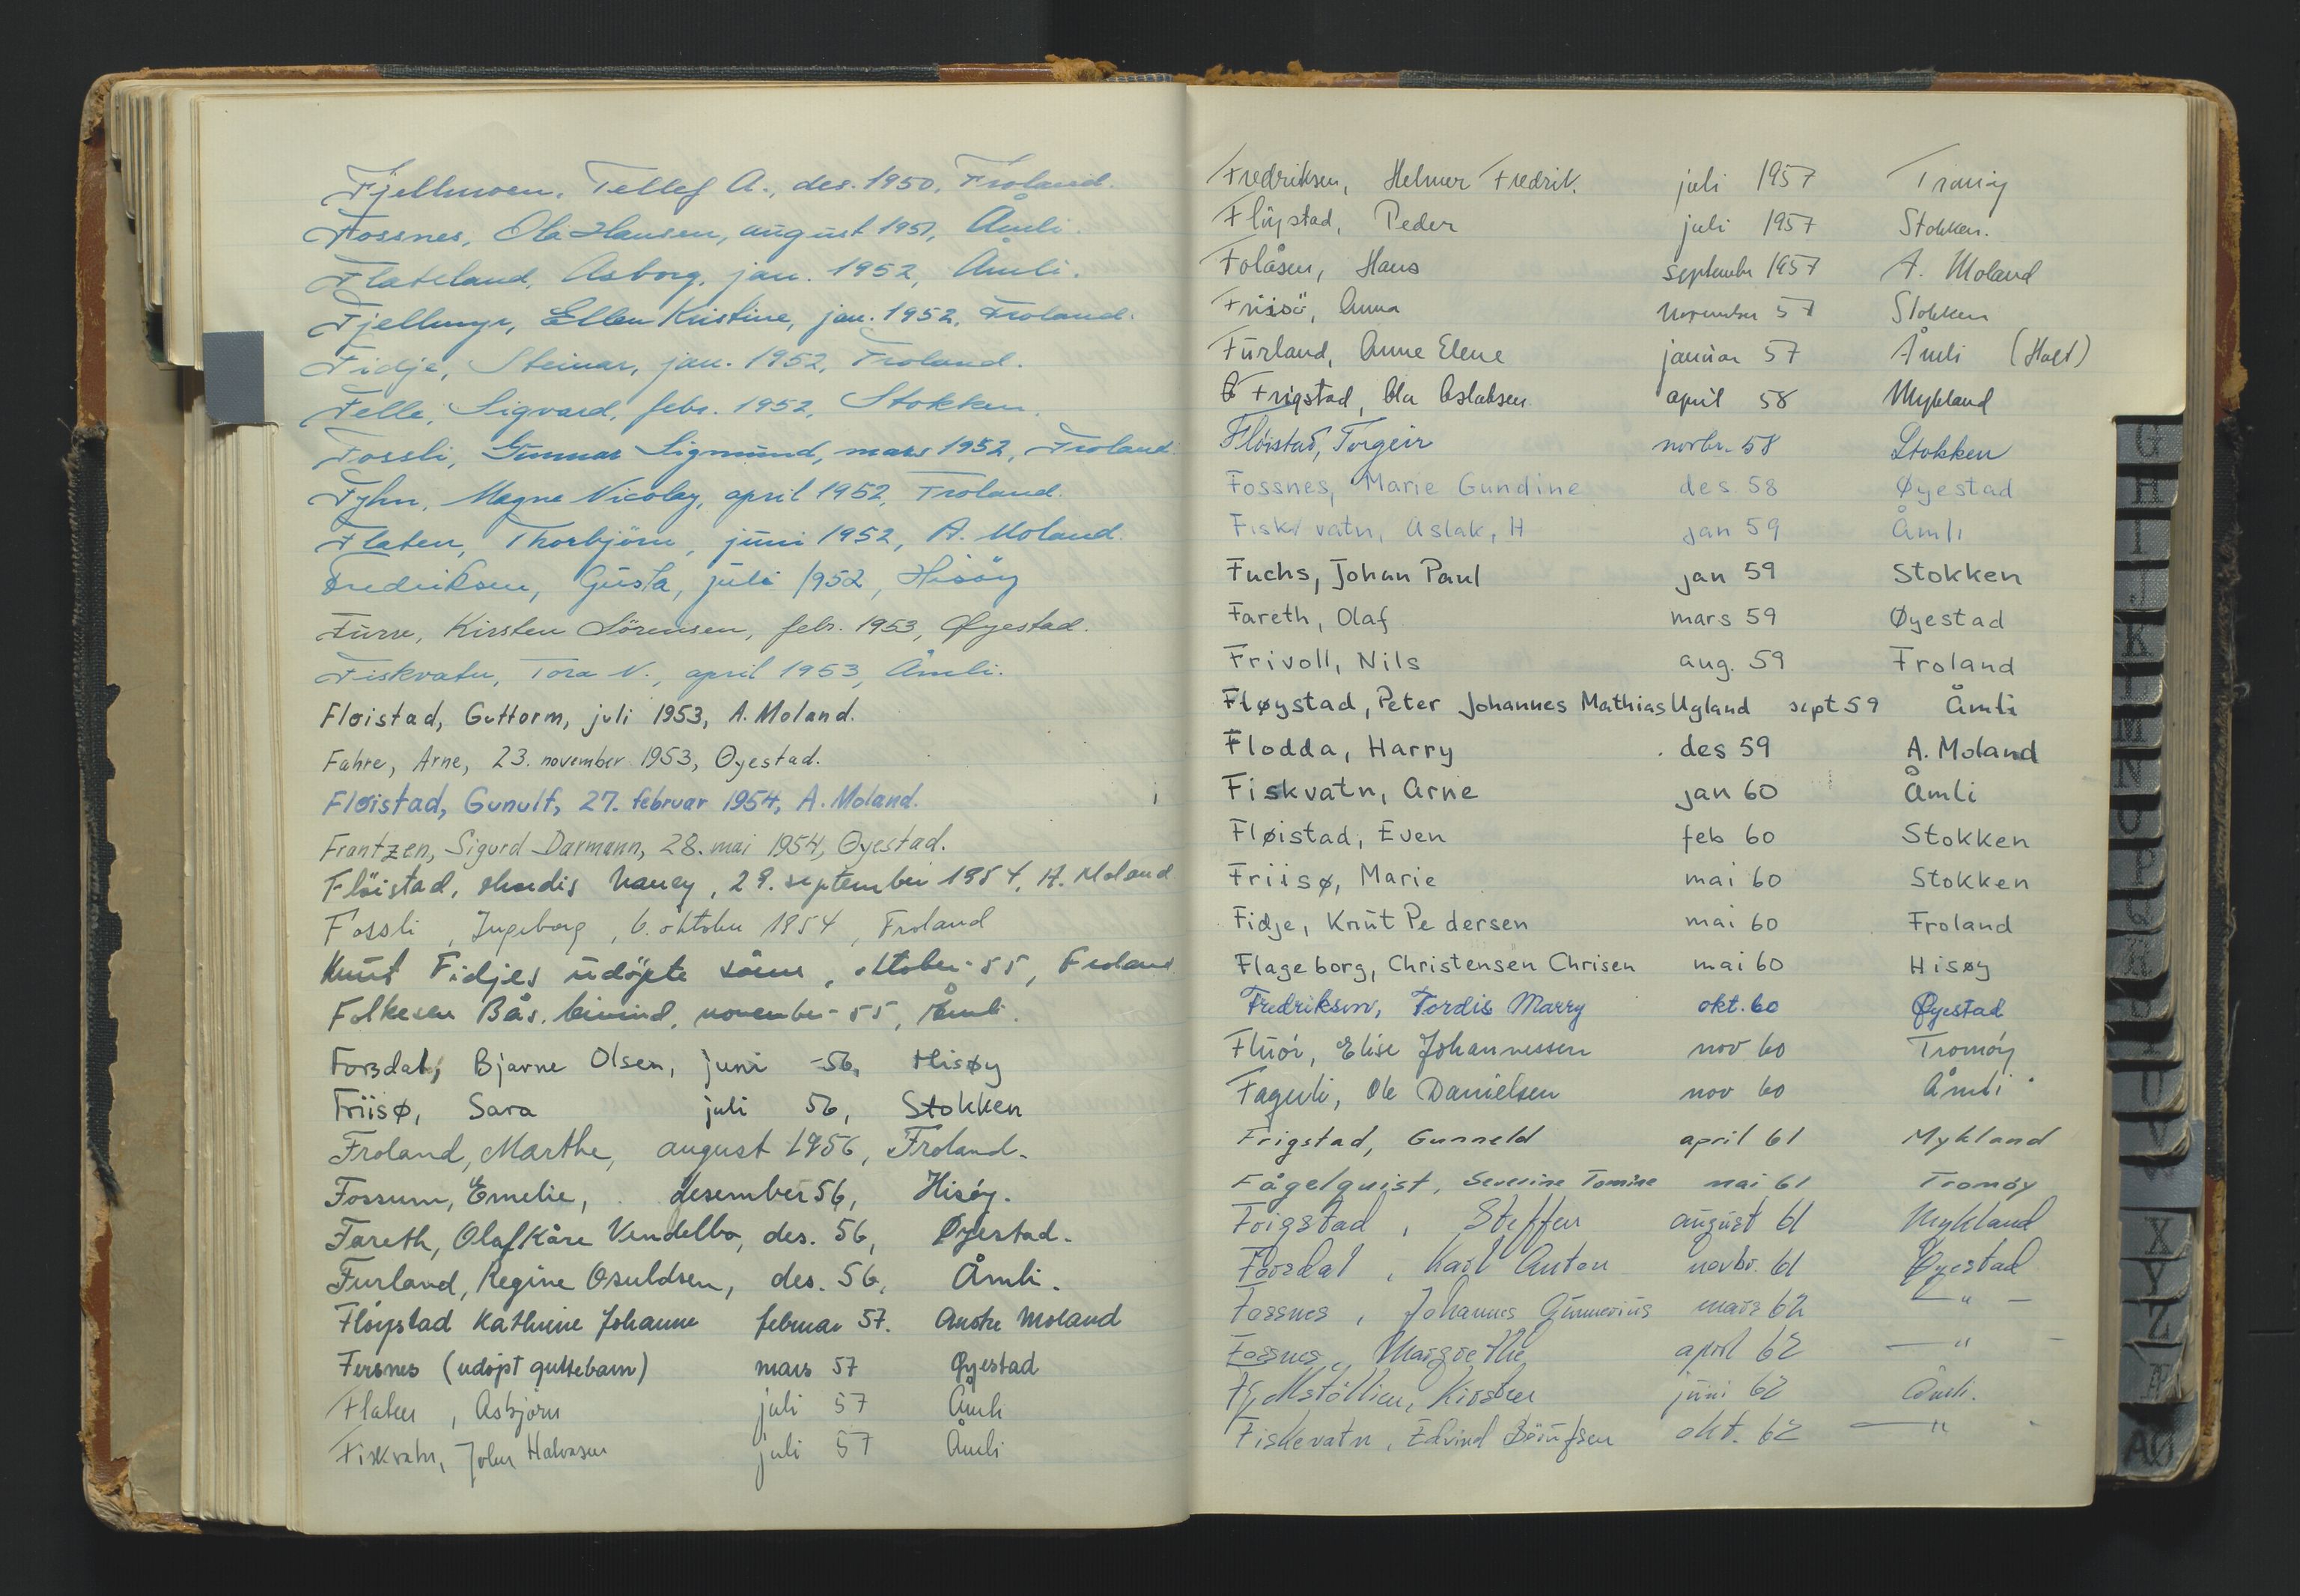 Fjellmoen, Tellef A., des. 1950, Froland.
Fossnes, Ola Hansen, august 1951, Åmli.
Flateland, Asborg, jan. 1952, Åmli.
Fjellmyr, Ellen Kristine, jan. 1952, Froland.
Fidje, Steinar, jan. 1952, Froland.
Felle, Sigvard, febr. 1952, Stokken.
Fossli, Gunnar Sigmund, mars 1952, Froland
Fyhn, Magne Nicolay, april 1952, Froland.
Flaten, Thorbjörn, juni 1952, A. Moland.
Fredriksen, Gusta, juli 1952, Hisöy
Furre, Kirsten Sörensen, febr. 1953, Øyestad.
Fiskvatn, Tora N., april 1953, Åmli.
Fløistad, Guttorm, juli 1953, A. Moland.
Fahre, Arne, 23. november 1953, Øyestad.
Fløistad, Gunulf, 27. februar 1954, A. Moland.
Frantzen, Sigurd Darmann, 28. mai 1954, Øyestad.
Flöistad, Nancy, 29. september 1954, A. Moland
Fossli, Ingeborg, 6. oktober 1954, Froland
Knut Fidjes udöpte sönn, oktober - 55, Froland
Folkesen Bås, Eivind, november - 55, Åmli.
Forsdal, Bjarne Olsen, juni -56, Hisøy
Friisø, Sara juli 56, Stokken
Froland, Marthe, august 1956, Froland.
Fossum, Emelie, desember 56, Hisøy.
Fareth, Olaf Kåre Vendelbo, des. 56, Øyestad.
Furland, Regine Osuldsen, des. 56, Åmli.
Fløystad Kathrine Johanne februar 57. Austre Moland
Fersnes (udøpt guttebarn) mars 57 Øyestad
Flaten, Asbjørn juli 57 Åmli
Fiskvatn, John Halvorsen juli 57 Åmli
Fredriksen, Helmer Fredrik. juli 1957 Tromøy
Fløystad, Peder juli 1957 Stokken.
Folåsen, Hans september 1957 A. Moland
Friisö, Anna november 57 Stokken
Furland, Anne Elene januar 57 Åmli (Holt)
Frigstad, Ola Aslaksen april 58 Mykland
Fløistad, Torgeir novbr. 58 Stokken
Fossnes, Marie Gundine des. 58 Øyestad
Fiskvatn, Aslak, H jan 59 Åmli
Fuchs, Johan Paul jan 59 Stokken
Fareth, Olaf mars 59 Øyestad
Frivoll, Nils aug. 59 Froland
Fløystad, Peter Johannes Mathias Ugland sept 59 Åmli
Flodda, Harry des 59 A. Moland
Fiskvatn, Arne jan 60 Åmli
Fløistad, Even feb 60 Stokken
Friisø, Marie mai 60 Stokken
Fidje, Knut Pedersen mai 60 Froland
Flageborg, Christensen Chrisen mai 60 Hisøy
Fredriksen, Tordis Marry okt. 60 Øyestad
Fluör, Elise Johannessen nov 60 Tromøy
Fagerli, Ole Danielsen nov 60 Åmli
Frigstad, Gunneld april 61 Mykland
Fågelquist, Severine Tomine mai 61 Tromøy
Frigstad, Steffen august 61 Mykland
Forsdal, Karl Anton novbr. 61 Øyestad
Fossnes, Johannes Gunnerius mars 62 — " —
Fossnes, Margrethe april 62 — " —
Fjellstöllien, Kirsten juni 62 Åmli.
Fiskevatn, Edvind okt. 62 — "
G
H
I
J
K
L
M
N
O
P
Q
U
V
X
Y
Z
Æ
AØ